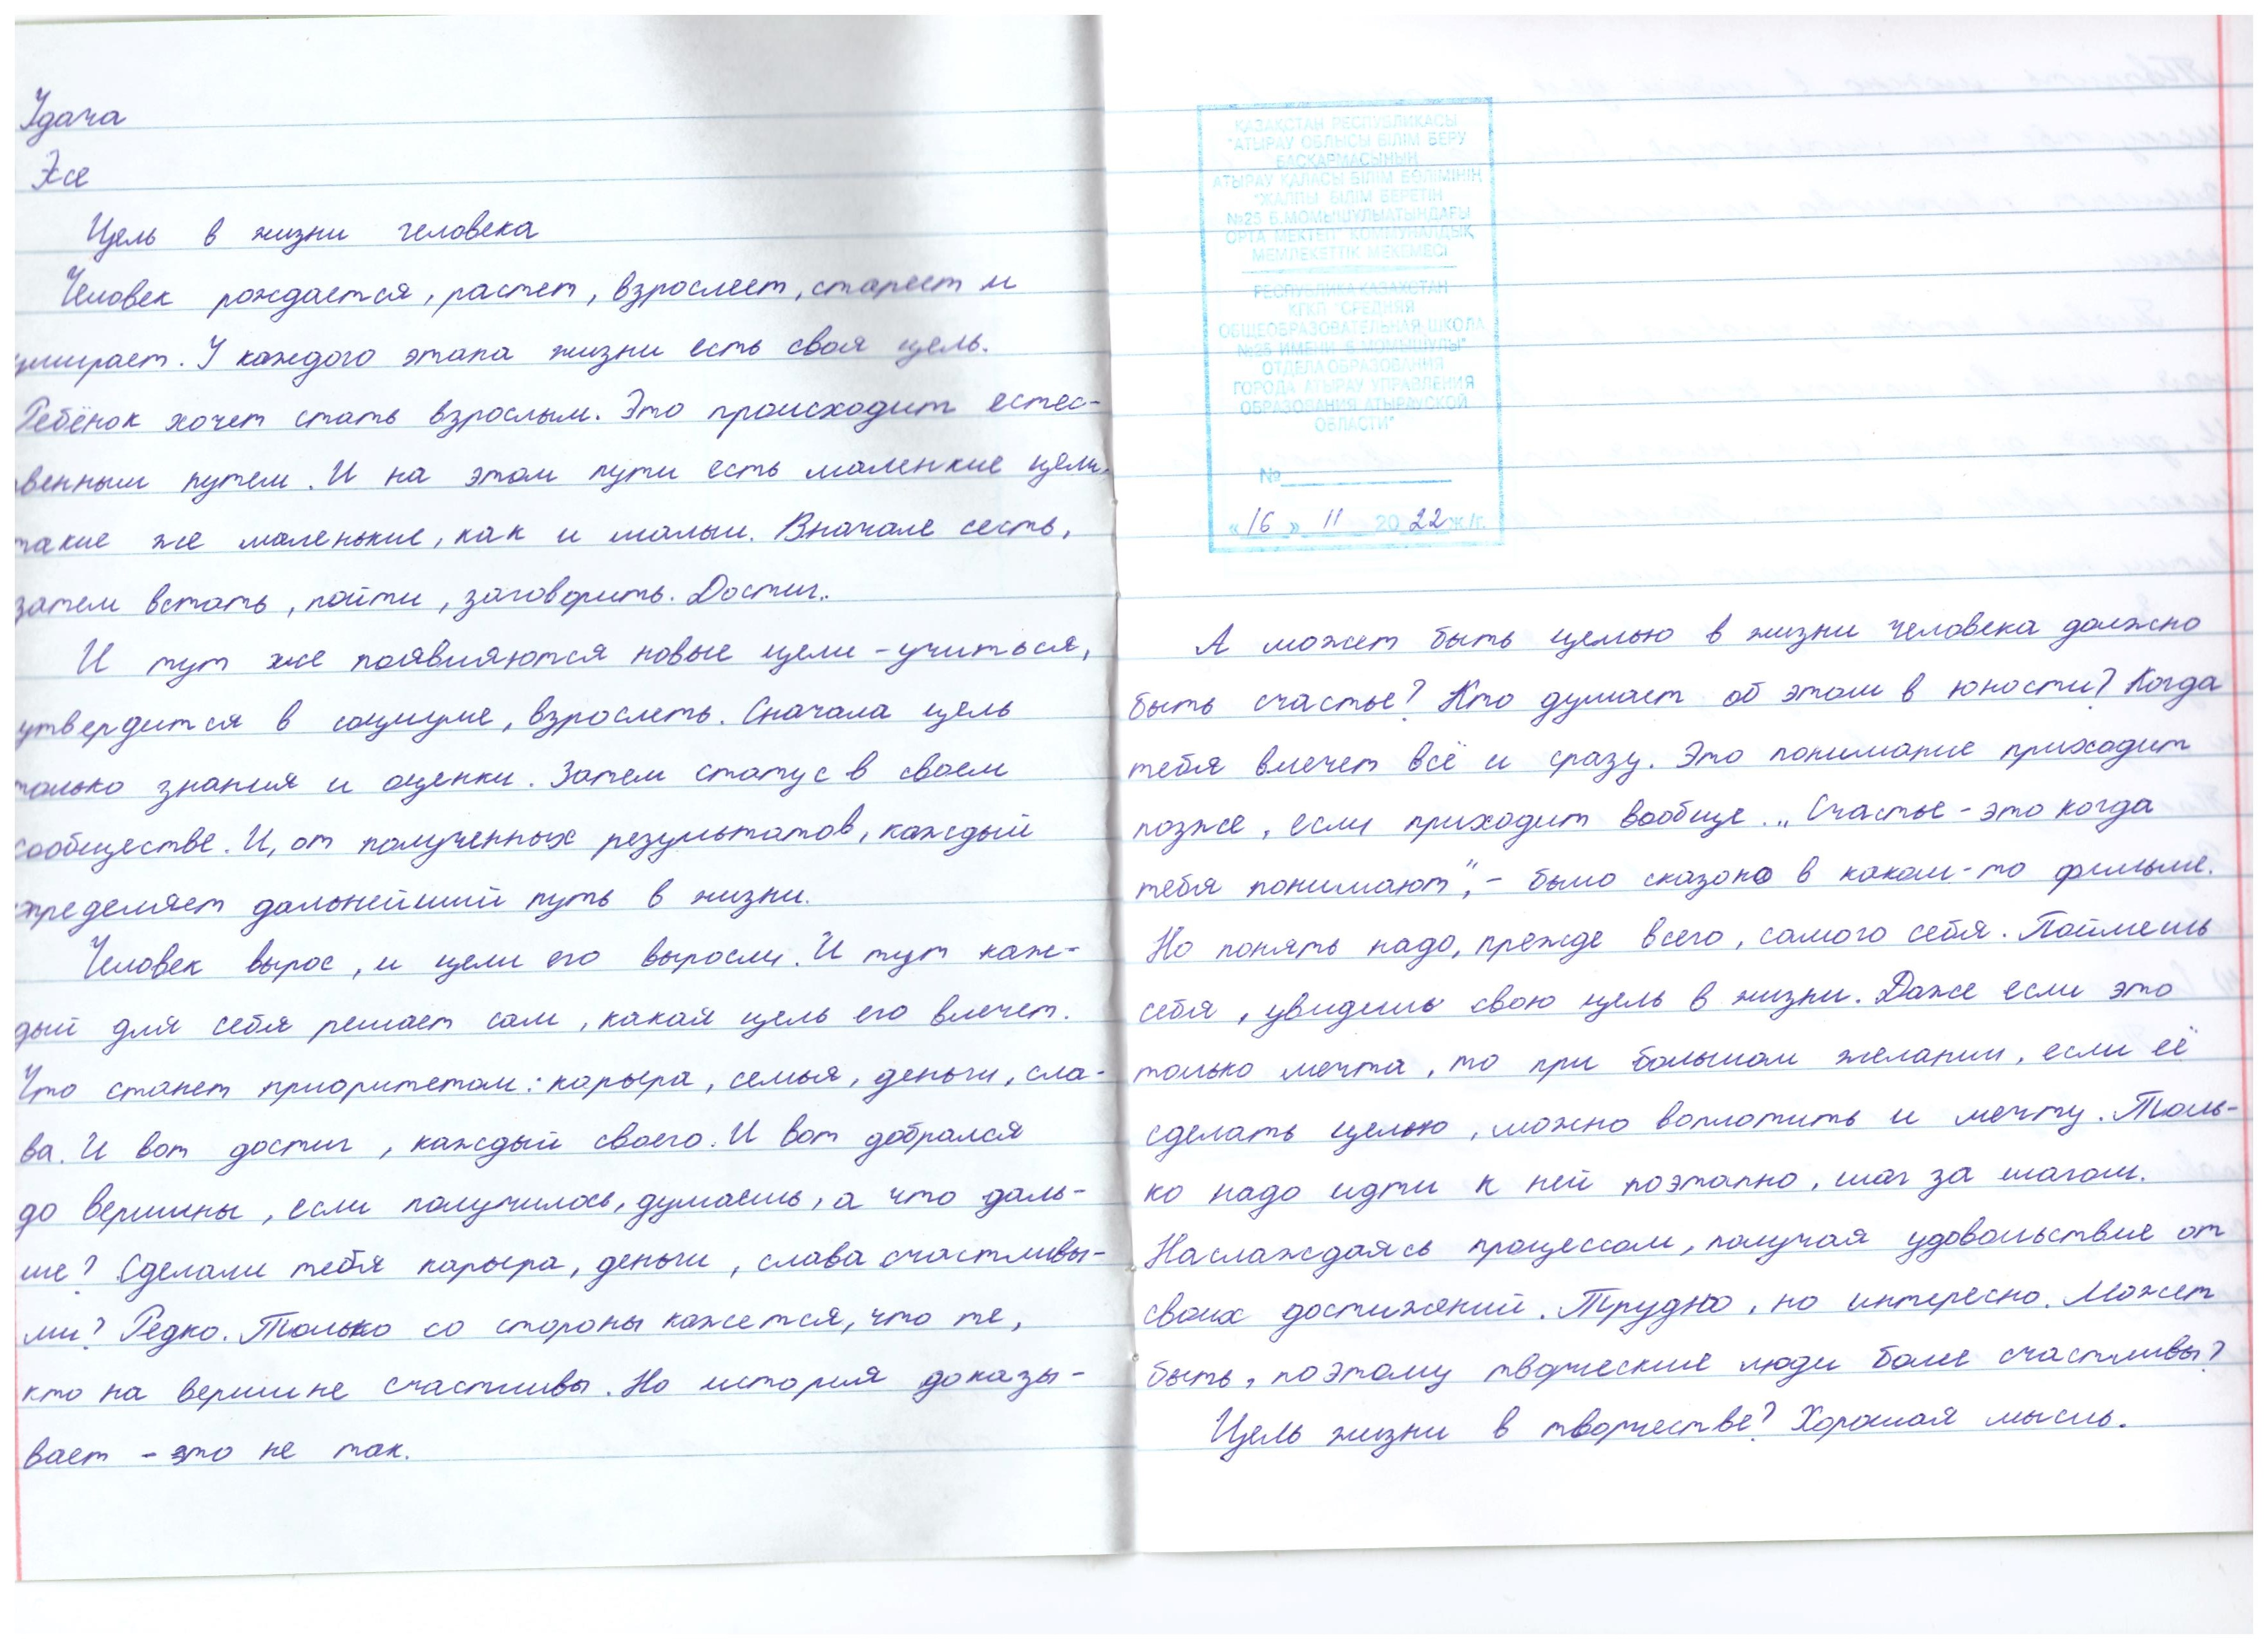 Удача
Эсе
Цель в жизни человека
Человек рождается, растет, взрослеет, стареет и
умирает. У каждого этапа жизни есть своя цель.
Ребёнок хочет стать взрослым. Это происходит естес-
твенным путем. И на этом пути есть маленкие цели,
такие же маленькие, как и малыш. Вначале сесть,
затем встать, пойти, заговорить. Достиг.
И тут же появляются новые цели - учиться,
утвердится в социуме, взрослеть. Сначала цель
только знания и оценки. Затем статус в своем
сообществе. И, от полученных результатов, каждый
определяет дальнейший путь в жизни.
Человек вырос, и цели его выросли. И тут каж-
дый для себя решает сам, какая цель его влечет.
Что станет приоритетом: карьера, семья, деньги, сла-
ва. И вот достиг, каждый своего. И вот добрался
до вершины, если получилось, думаешь, а что даль-
ше? Сделали тебя карьера, деньги, слава счастливы-
ми? Редко. Только со стороны кажется, что те,
кто на вершине счастливы. Но история доказы-
вает - это не так.
ҚАЗАҚСТАН РЕСПУБЛИКАСЫ
"АТЫРАУ ОБЛЫСЫ БІЛІМ БЕРУ
БАСҚАРМАСЫНЫҢ
АТЫРАУ ҚАЛАСЫ БІЛІМ БӨЛІМІНІҢ
"ЖАЛПЫ БІЛІМ БЕРЕТІН
№25 Б.МОМЫШҰЛЫ АТЫНДАҒЫ
ОРТА МЕКТЕП" КОММУНАЛДЫҚ
МЕМЛЕКЕТТІК МЕКЕМЕСІ
РЕСПУБЛИКА КАЗАХСТАН
КГКП "СРЕДНЯЯ
ОБЩЕОБРАЗОВАТЕЛЬНАЯ ШКОЛА
№25 ИМЕНИ Б.МОМЫШУЛЫ"
ОТДЕЛА ОБРАЗОВАНИЯ
ГОРОДА АТЫРАУ УПРАВЛЕНИЯ
ОБРАЗОВАНИЯ АТЫРАУСКОЙ
ОБЛАСТИ"
№
«16» 11 2022 ж./г.
А может быть целью в жизни человека должно
быть счастье? Кто думает об этом в юности? Когда
тебя влечет всё и сразу. Это понимание приходит
позже, если приходит вообще. „Счастье - это когда
тебя понимают", - было сказоно в каком-то фильме.
Но понять надо, прежде всего, самого себя. Поймешь
себя, увидишь свою цель в жизни. Даже если это
только мечта, то при большом желании, если её
сделать целью, можно воплотить и мечту. Толь-
ко надо идти к ней поэтапно, шаг за шагом.
Наслаждаясь процессом, получая удовольствие от
своих достижений. Трудно, но интересно. Может
быть, поэтому творческие люди более счастливы?
Цель жизни в творчестве? Хорошая мысль.